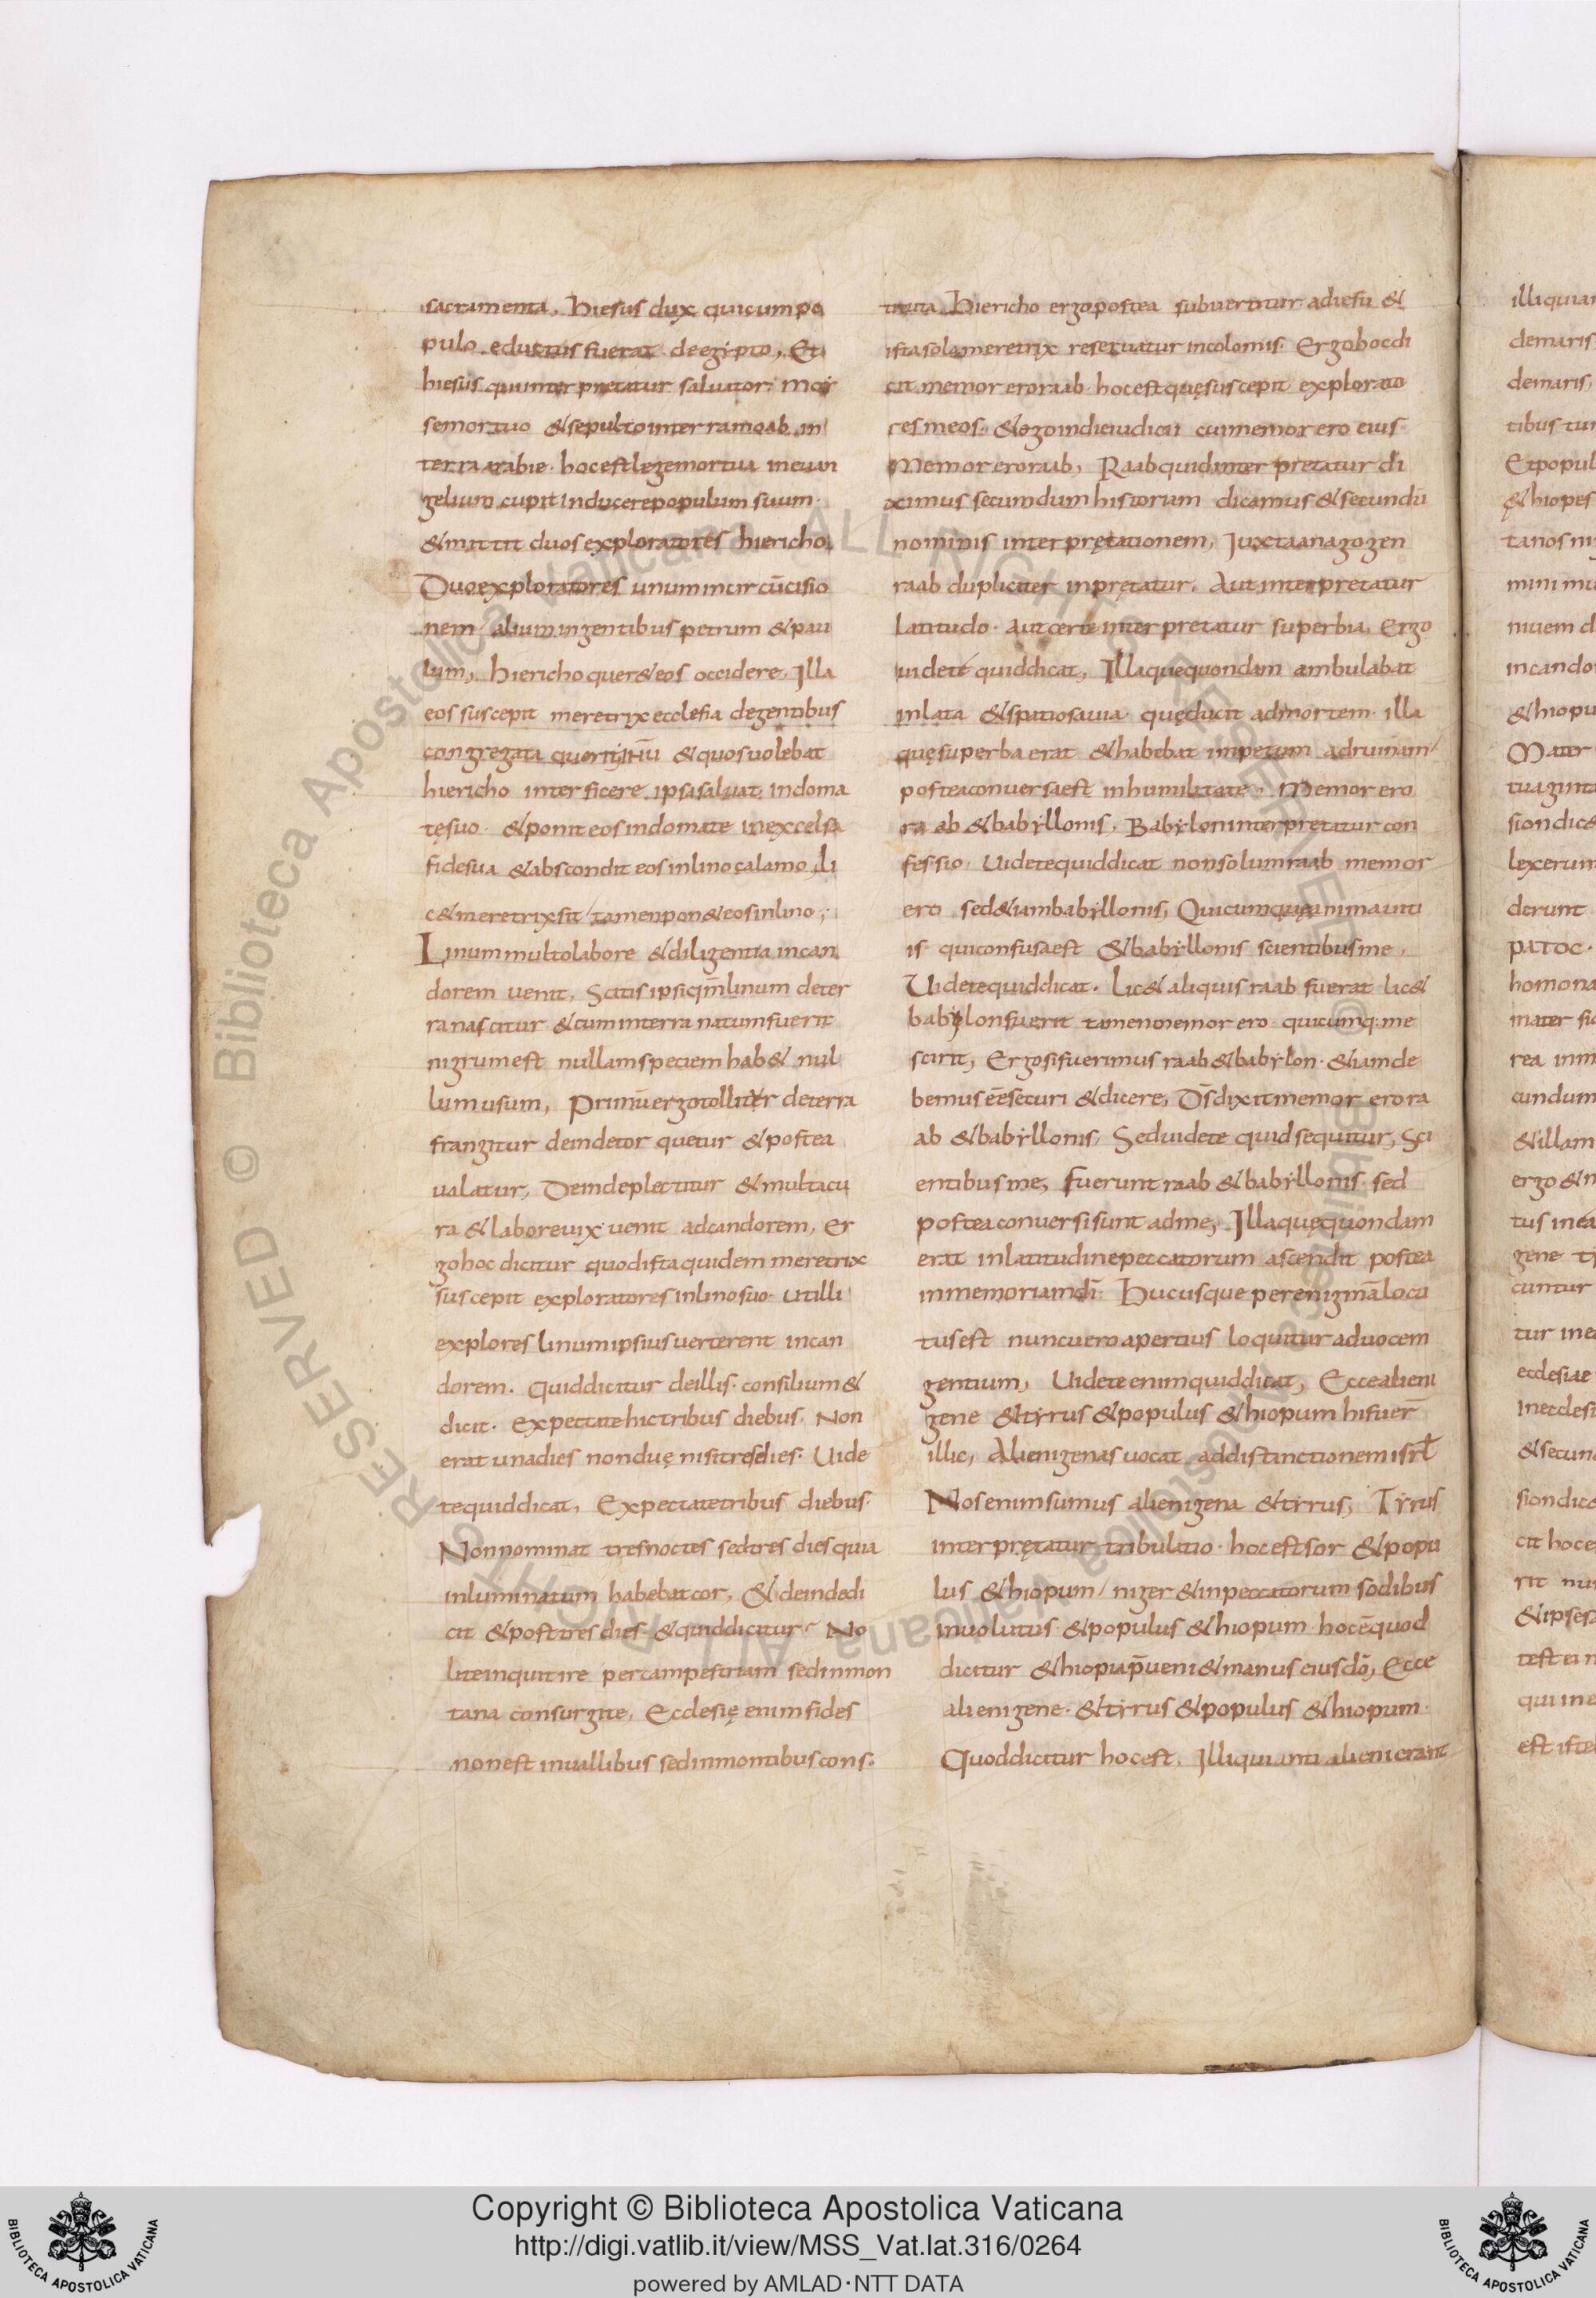 sacramenta, hiesus dux qui cum po
pulo eductus fuerat de egypto, Et
hiesus qui interpretatur saluator. moy
se mortuo & sepulto in terra moab in
terra arabie. hoc est lege mortua in euan
gelium cupit inducere populum suum.
& mittit duos exploratores hiericho.
Duo exploratores unum in circūcisio
nem alium in gentibus petrum & pau
lum, hiericho quer& eos occidere, Illa
eos suscepit meretrix ecclesia de gentibus
congregata & quos uolebat
hiericho interficere ipsa saluat. in doma
tę suo. & ponit eos in domate in excelsa
fide sua & abscondit eos in lino calamo, li
c& meretrix sit tamen pon& eos in lino,
Linum multo labore & diligentia in can
dorem uenit, Scitis ipsi qm̄ linum de ter
ra nascitur & cum in terra natum fuerit
nigrum est nullam speciem hab& nul
lum usum, Primū ergo tollitur de terra
frangitur deinde torquetur & postea
ualatur, Deinde plectitur & multa cu
ra & labore uix uenit ad candorem, Er
go hoc dicitur quod ista quidem meretrix
suscepit exploratores in lino suo. ut illi
explores linum ipsius uerterent in can
dorem. Quid dicitur de illis. consilium &
dicit. expectate hic tribus diebus. Non
erat una dies non duę nisi tres dies. Uide
te quid dicat, Expectate tribus diebus.
Non nominat tres noctes sed tres dies quia
inluminatum habebat cor, & deinde di
cit & post tres dies & quid dicitur. No
lite inquit ire per campestriam sed in mon
tana consurgite, Ecclesię enim fides
non est in uallibus sed in montibus cons.
tituta. Hiericho ergo postea subuertitur ad iesu &
ista sola meretrix reseruatur incolomis. Ergo hoc di
cit memor ero raab. hoc est quę suscepit explorato
res meos. & ego in die iudicii cui memor ero eius.
Memor ero raab, Raab quid interpretatur di
ximus secundum historiam dicamus & secundū
nominis interpretationem, Iuxta anagogen
raab dupliciter inprętatur. Aut interpretatur
latitudo. aut certe interpretatur superbia. Ergo
uidete quid dicat, Illa quę quondam ambulabat
in lata & spatiosa uia. quę ducit ad mortem. illa
quę superba erat & habebat impetum ad ruinam
postea conuersa est in humilitate, Memor ero
raab & babyllonis, Babylon interpretatur con
fessio. Uidete quid dicat non solum raab memor
ero sed &iam babyllonis, Quicumque anima uiti
is qui confusa est & babyllonis scientibus me,
Uidete quid dicat. Lic& aliquis raab fuerat lic&
babylon fuerit tamen memor ero quicumq: me
scirit, Ergo si fuerimus raab & babylon. &iam de
bemus eē securi & dicere, D̄s dixit memor ero ra
ab & babyllonis, Sed uidete quid sequitur, Sci
entibus me, fuerunt raab & babyllonis. sed
postea conuersi sunt ad me, Illa quę quondam
erat in latitudine peccatorum ascendit postea
in memoriam dī. Hucusque per enigmā locu
tus est nunc uero apertius loquitur ad uocem
gentium, Uidete enim quid dicat, Ecce alieni
gene & tyrus & populus &hiopum hi fuer
illic, Alienigenas uocat ad distinctionem isrł
Nos enim sumus alienigena & tyrus, Tyrus
interprętatur tribulatio. hoc est sor & popu
lus &hiopum niger & in peccatorum sodibus
inuolutus & populus &hiopum hoc ē quod
dicitur &hiopia p̄ueni& manus eius dō, Ecce
alienigene. & tyrus & populus &hiopum.
Quod dicitur hoc est. Illi qui anti alieni erant
illi quia
demaris
demaris,
tibus tu
Et popul
&hiopes
tanos ni
mini mu
niuem d
in cando
&hiopu
Mater
tuaginta
sion dic&
lexerunt
derunt
ΡΑΤΟC.
homo na
mater si
rea inm
cundum
& illam
ergo & n
tus in ea
gene ty
cuntur
tur in e
ecclesiae
in ecclesi
& secun
sion dic&
cit hoc e
rit nu
& ipse
test ei n
qui in e
est iste
Copyright © Biblioteca Apostolica Vaticana
http://digi.vatlib.it/view/MSS_Vat.lat.316/0264
powered by AMLAD·NTT DATA
BIBLIOTECA APOSTOLICA VATICANA
BIBLIOTECA APOSTOLICA VATICANA
© Biblioteca Apostolica Vaticana ALL RIGHTS RESERVED © Biblioteca Apostolica Vaticana ALL RIGHTS RESERVED